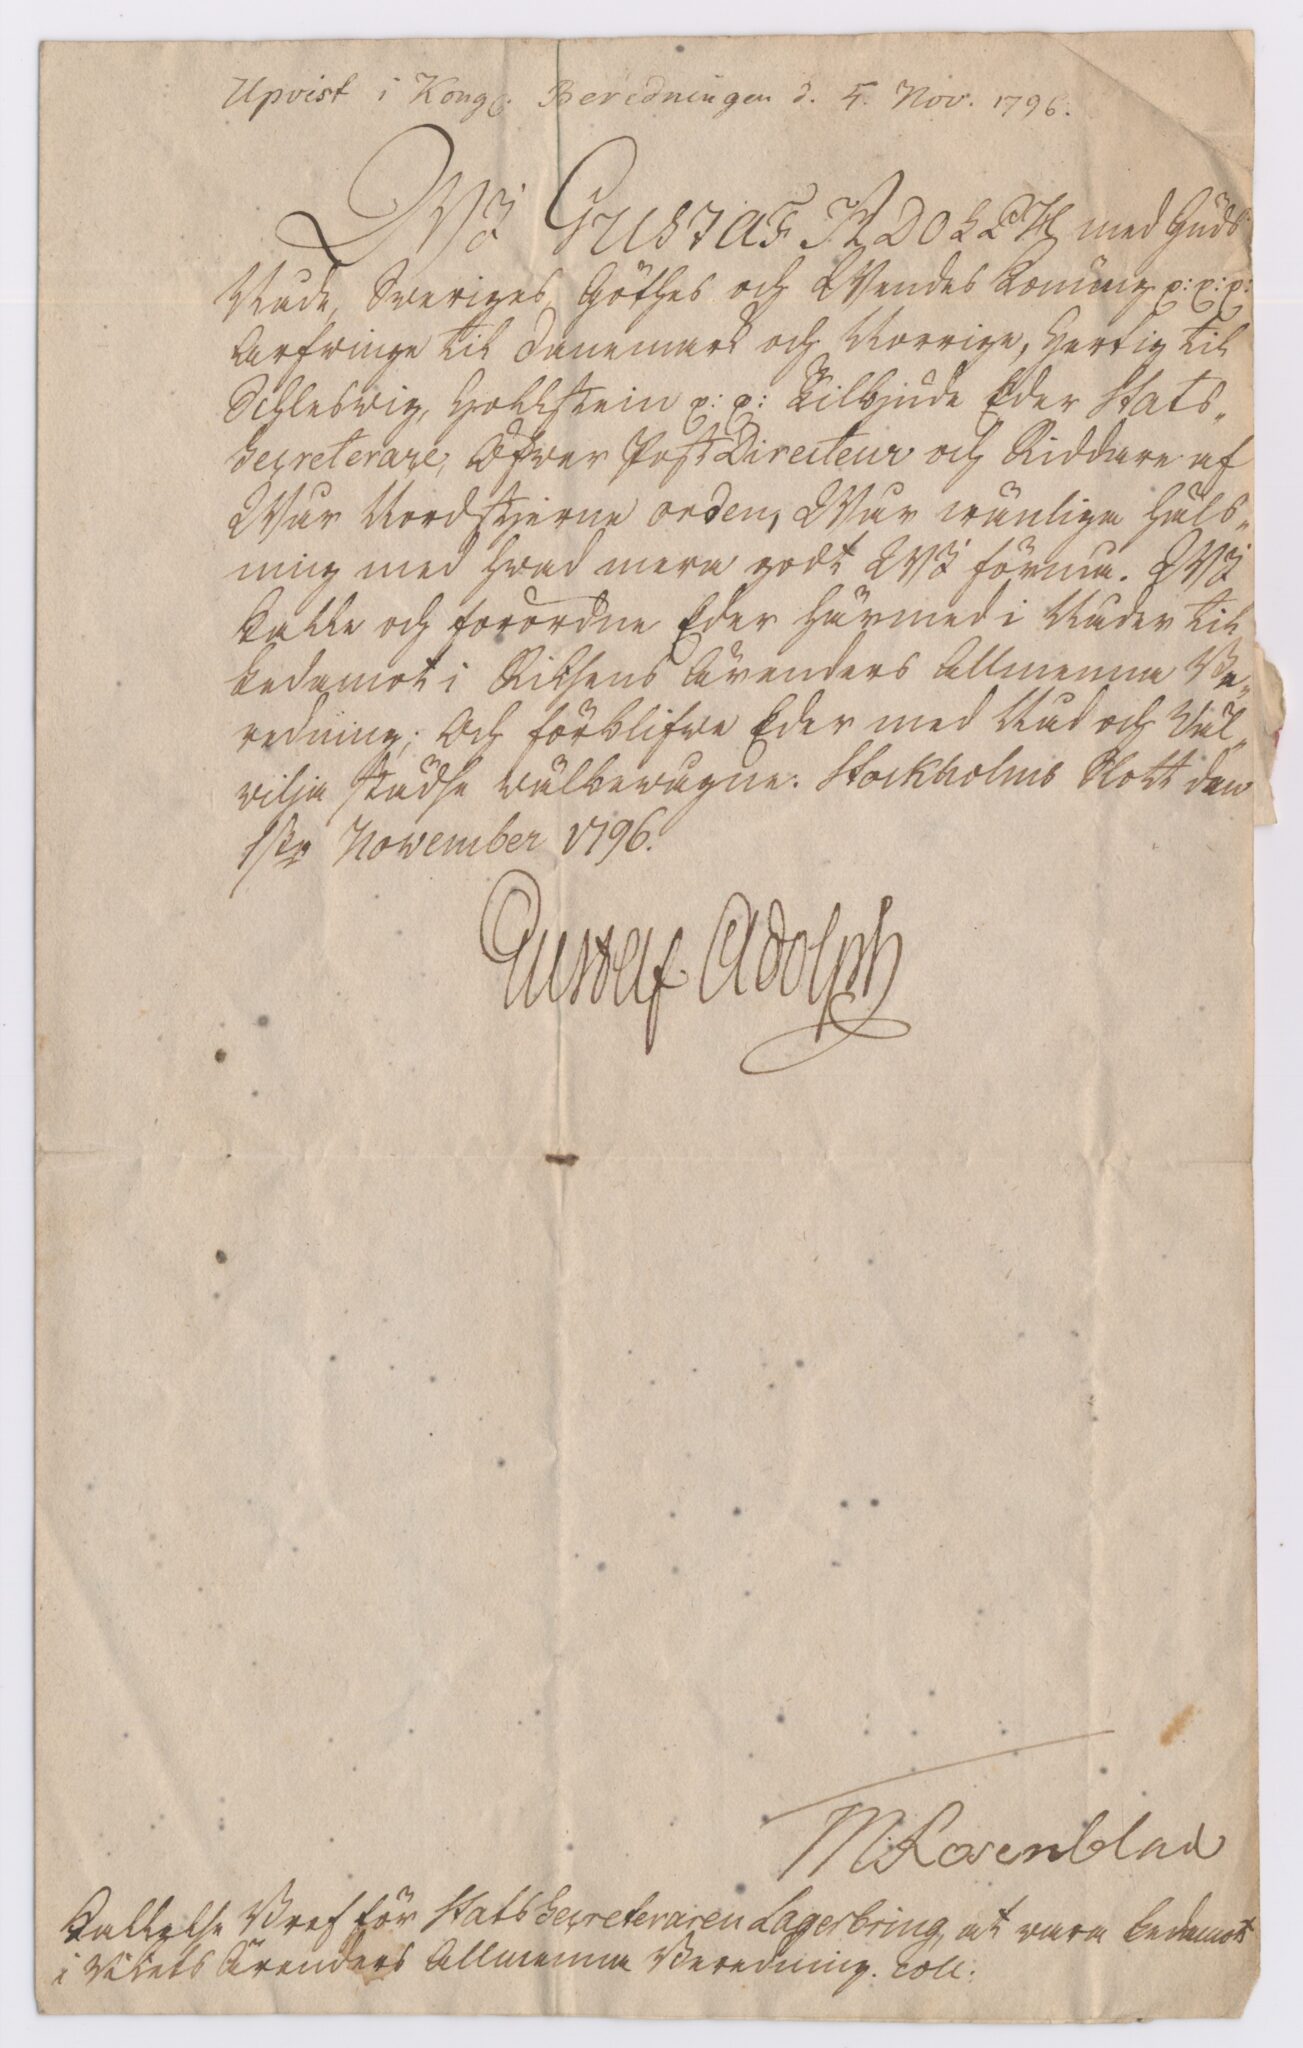 Upvist i Kongl. Beredningen d. 5. Nov. 1796.
Wij GUSTAF ADOLPH med Guds
Nåde, Sweriges, Göthes och Wendes Konung p: p: p:
Arfwinge til Danemark och Norrige, Hertig til
Schleswig, Hollstein p: p: Tilbjude Eder Stats-
Secreterare, Öfwer Post Directeur och Riddare af
Wår Nordstjerne orden, Wår wänliga Häls-
ning med hwad mera godt Wij förmå. Wij
kalle och förordne Eder härmed i Nåder til
Ledamot i Riksens Ärenders Allmenna Be-
redning; Och förblifwe Eder med Nåd och Väl-
vilja städse wälbewågne. Stockholms Slott den
1sta November 1796.
Gustaf Adolph
M. Rosenblad
Kallelse Bref för Stats Secreteraren Lagerbring, at vara Ledamot
i Rikets Ärenders Allmenna Beredning. Coll: